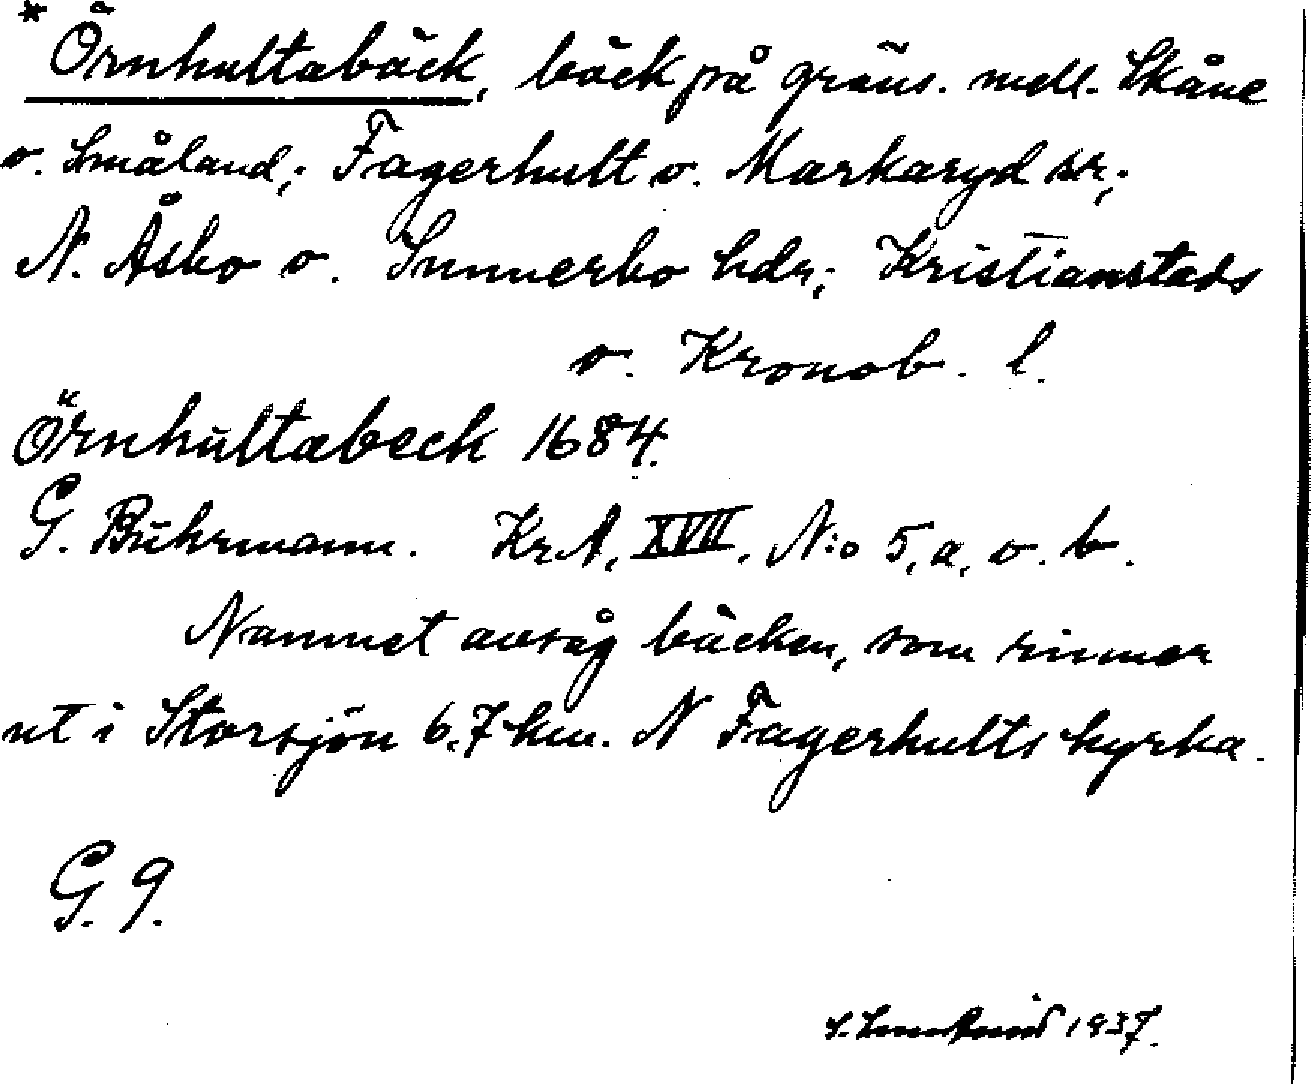 *Örnhultabäck, bäck på gräns. mell. Skåne
o. Småland; Fagerhult o. Markaryd sn;
N. Åsbo o. Sunnerbo hdr; Kristianstads
o. Kronob. l.
Örnhultabeck 1684.
G. Buhrmann. KrA, XVII, N:o 5, a, o. b.
Namnet avsåg bäcken, som rinner
ut i Storsjön 6.7 km. N Fagerhults kyrka.
G. 9.
1937.